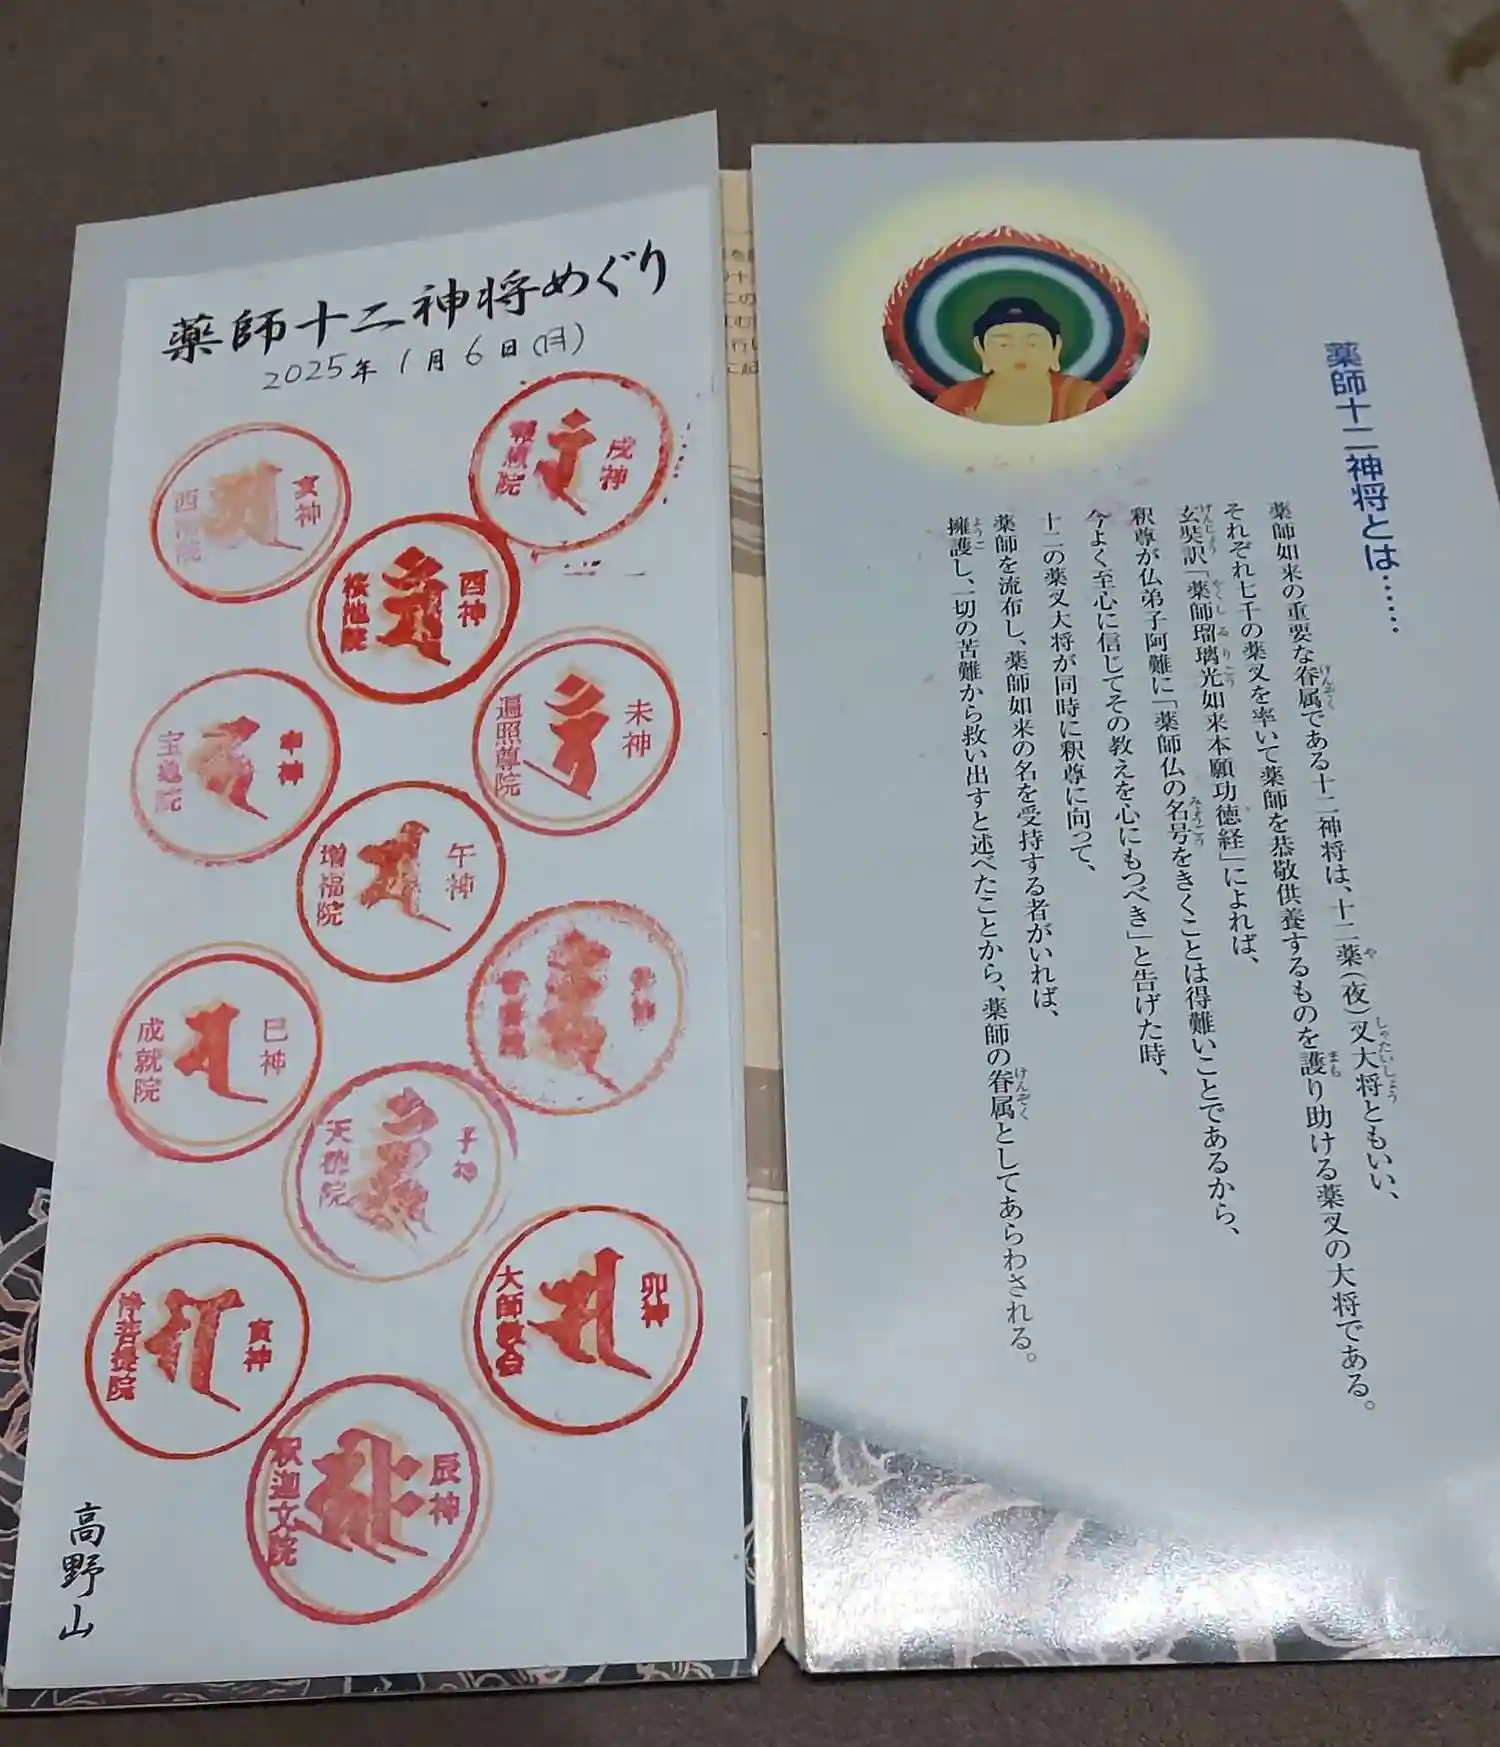 薬師十二神将めぐり
2025年1月6日(月)
亥神
西南院
戌神
報恩院
酉神
桜池院
申神
宝亀院
未神
遍照尊院
午神
増福院
巳神
成就院
子神
天徳院
寅神
浄菩提院
卯神
大師教会
辰神
釈迦文院
高野山
薬師十二神将とは……
薬師如来の重要な眷属である十二神将は、十二薬(夜)叉大将ともいい、
それぞれ七千の薬叉を率いて薬師を恭敬供養するものを護り助ける薬叉の大将である。
玄奘訳「薬師瑠璃光如来本願功徳経」によれば、
釈尊が仏弟子阿難に「薬師仏の名号をきくことは得難いことであるから、
今よく至心に信じてその教えを心にもつべき」と告げた時、
十二の薬叉大将が同時に釈尊に向って、
薬師を流布し、薬師如来の名を受持する者がいれば、
擁護し、一切の苦難から救い出すと述べたことから、薬師の眷属としてあらわされる。